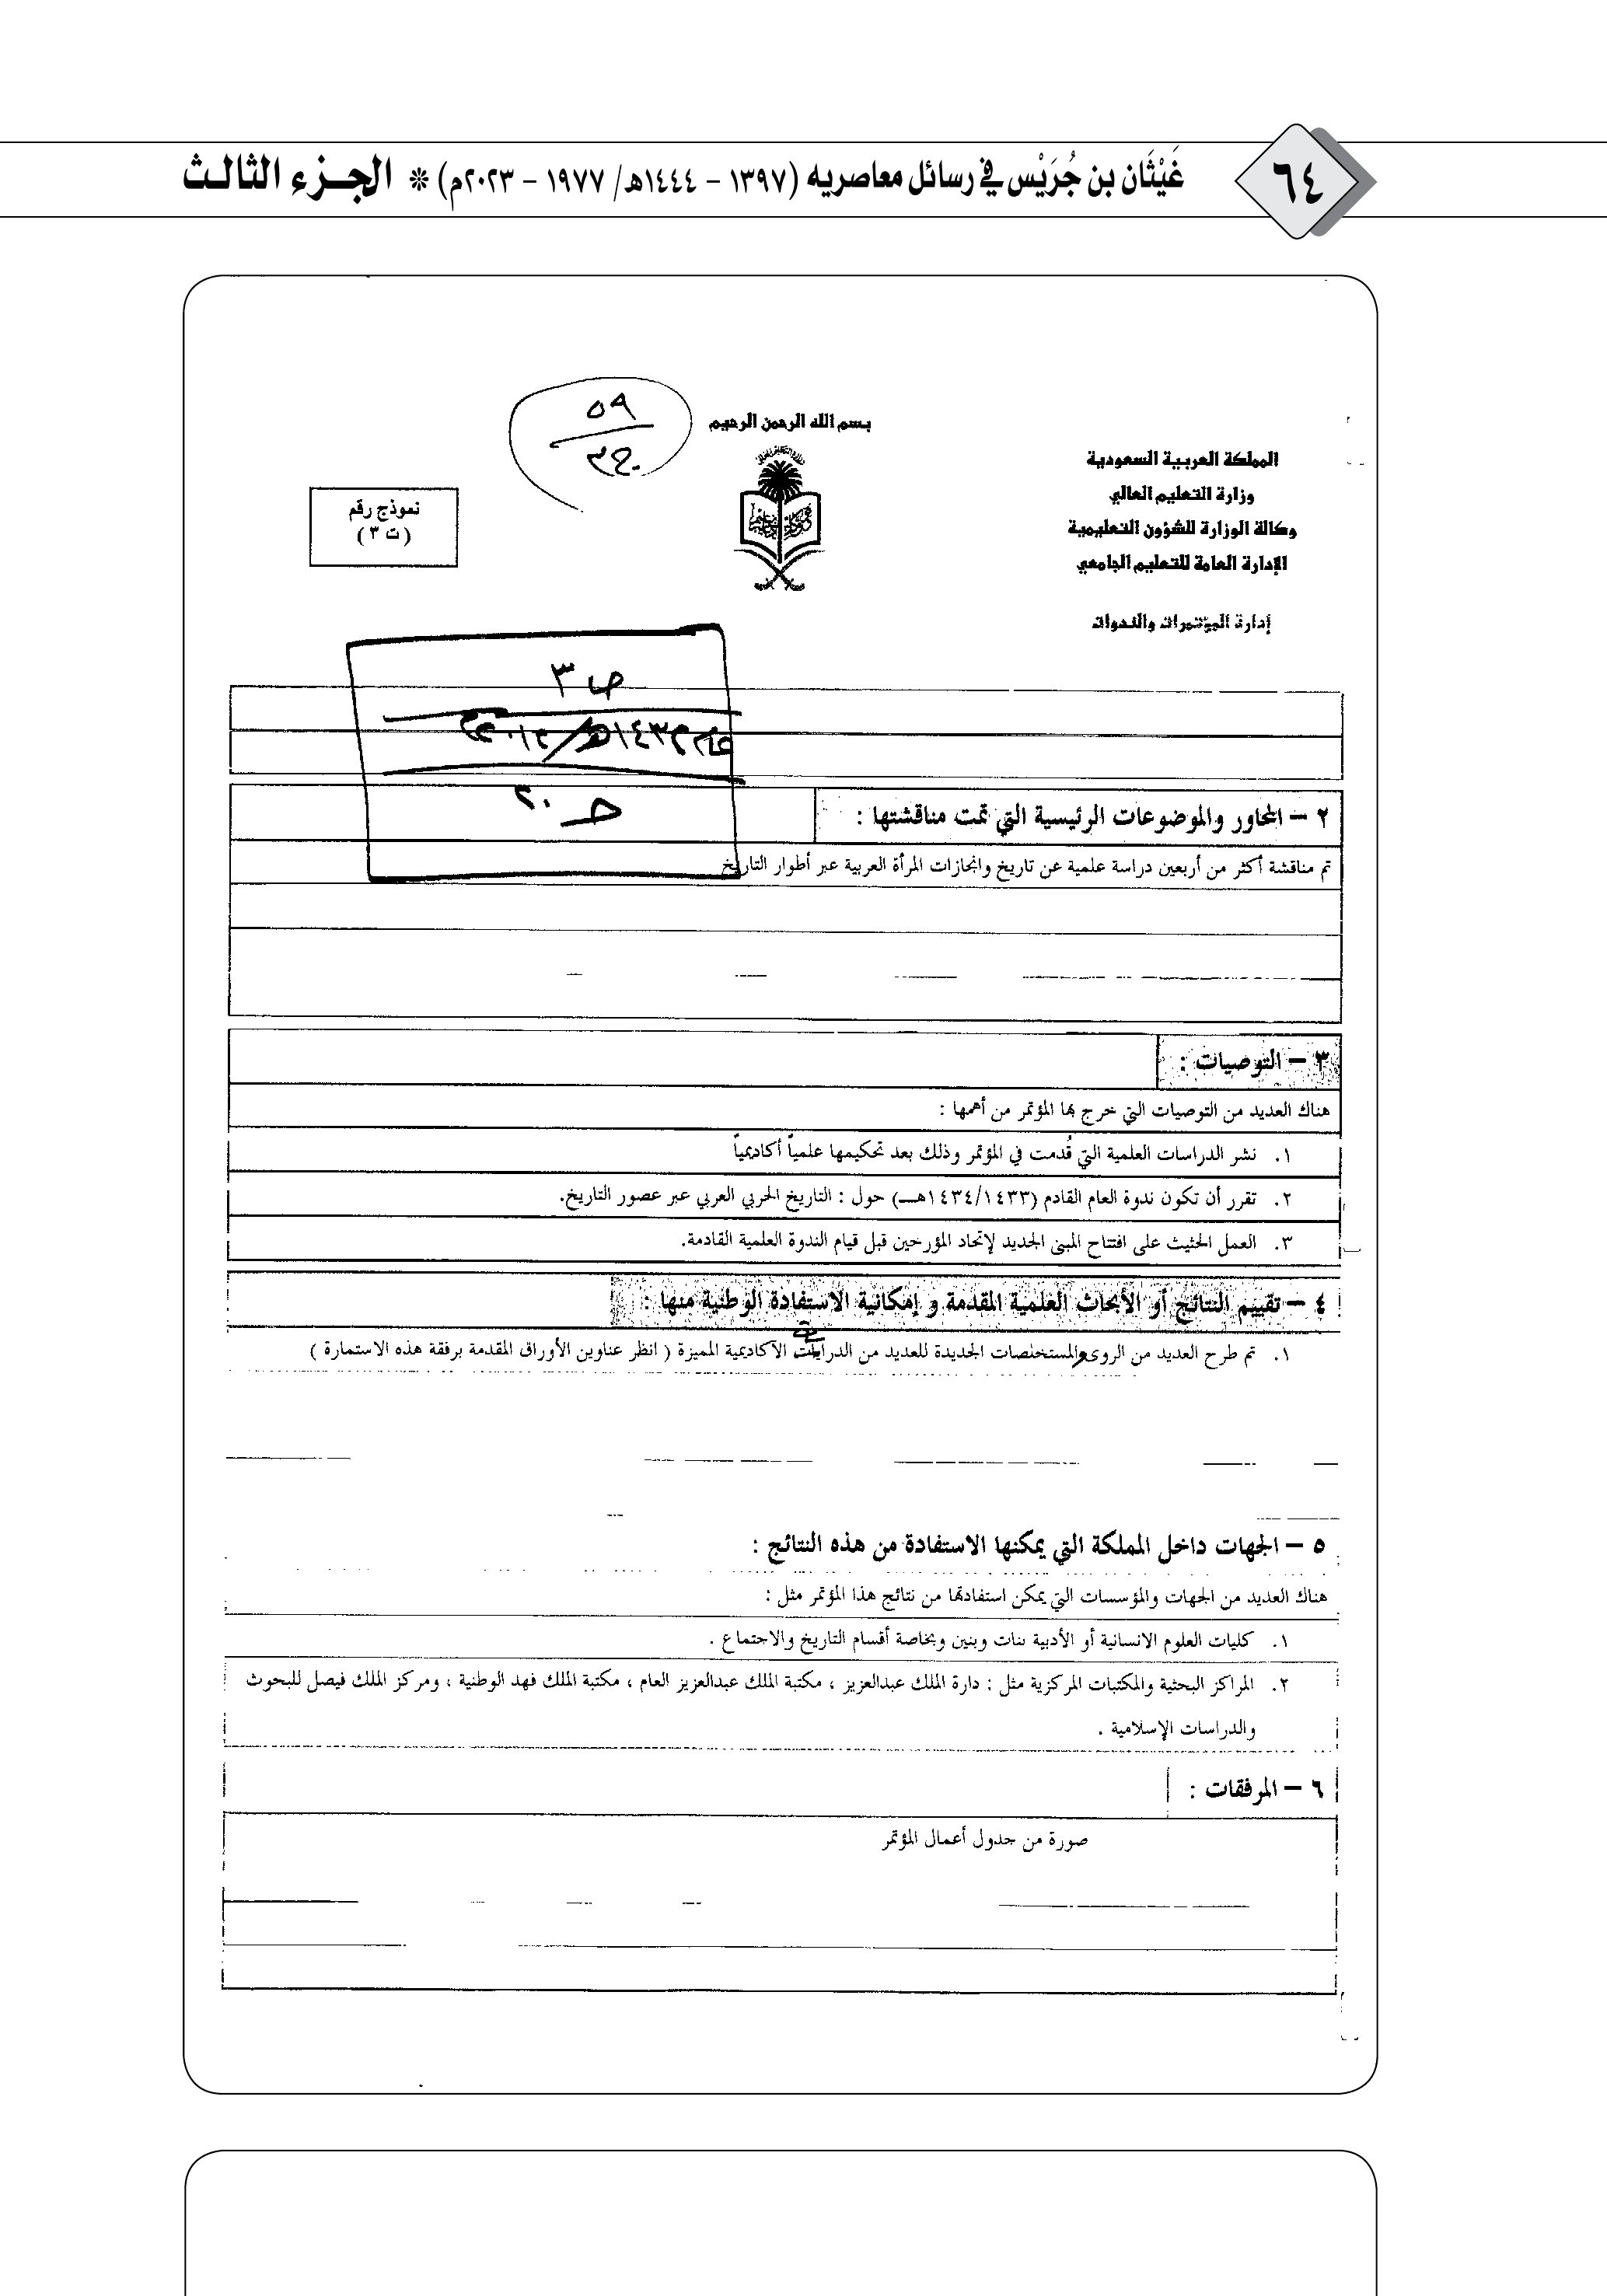 ٦٤
غَيْثَان بن جُرَيْس في رسائل معاصريه (١٣٩٧ – ١٤٤٤هـ/ ١٩٧٧ – ٢٠٢٣م) * الجـزء الثالـث
بسم الله الرحمن الرحيم
المملكة العربية السعودية
وزارة التعليم العالي
وكالة الوزارة للشؤون التعليمية
الإدارة العامة للتعليم الجامعي
إدارة المؤتمرات والندوات
٥٩
نموذج رقم
( ت ٣ )
ص ٣
حـ ٢٠
٢ – المحاور والموضوعات الرئيسية التي تمت مناقشتها :
تم مناقشة أكثر من أربعين دراسة علمية عن تاريخ وانجازات المرأة العربية عبر أطوار التاريخ
٣ – التوصيات :
هناك العديد من التوصيات التي خرج بها المؤتمر من أهمها :
١. نشر الدراسات العلمية التي قُدمت في المؤتمر وذلك بعد تحكيمها علمياً أكاديمياً
٢. تقرر أن تكون ندوة العام القادم (١٤٣٤/١٤٣٣هـــ) حول : التاريخ الحربي العربي عبر عصور التاريخ.
٣. العمل الحثيث على افتتاح المبنى الجديد لإتحاد المؤرخين قبل قيام الندوة العلمية القادمة.
٤ – تقييم النتائج أو الأبحاث العلمية المقدمة و إمكانية الاستفادة الوطنية منها :
١. تم طرح العديد من الروى والمستخلصات الجديدة للعديد من الدراسات الآكاديمية المميزة ( انظر عناوين الأوراق المقدمة برفقة هذه الاستمارة )
٥ – الجهات داخل المملكة التي يمكنها الاستفادة من هذه النتائج :
هناك العديد من الجهات والمؤسسات التي يمكن استفادتها من نتائج هذا المؤتمر مثل :
١. كليات العلوم الانسانية أو الأدبية بنات وبنين وبخاصة أقسام التاريخ والاجتماع .
٢. المراكز البحثية والمكتبات المركزية مثل : دارة الملك عبدالعزيز ، مكتبة الملك عبدالعزيز العام ، مكتبة الملك فهد الوطنية ، ومركز الملك فيصل للبحوث
والدراسات الإسلامية .
٦ – المرفقات :
صورة من جدول أعمال المؤتمر